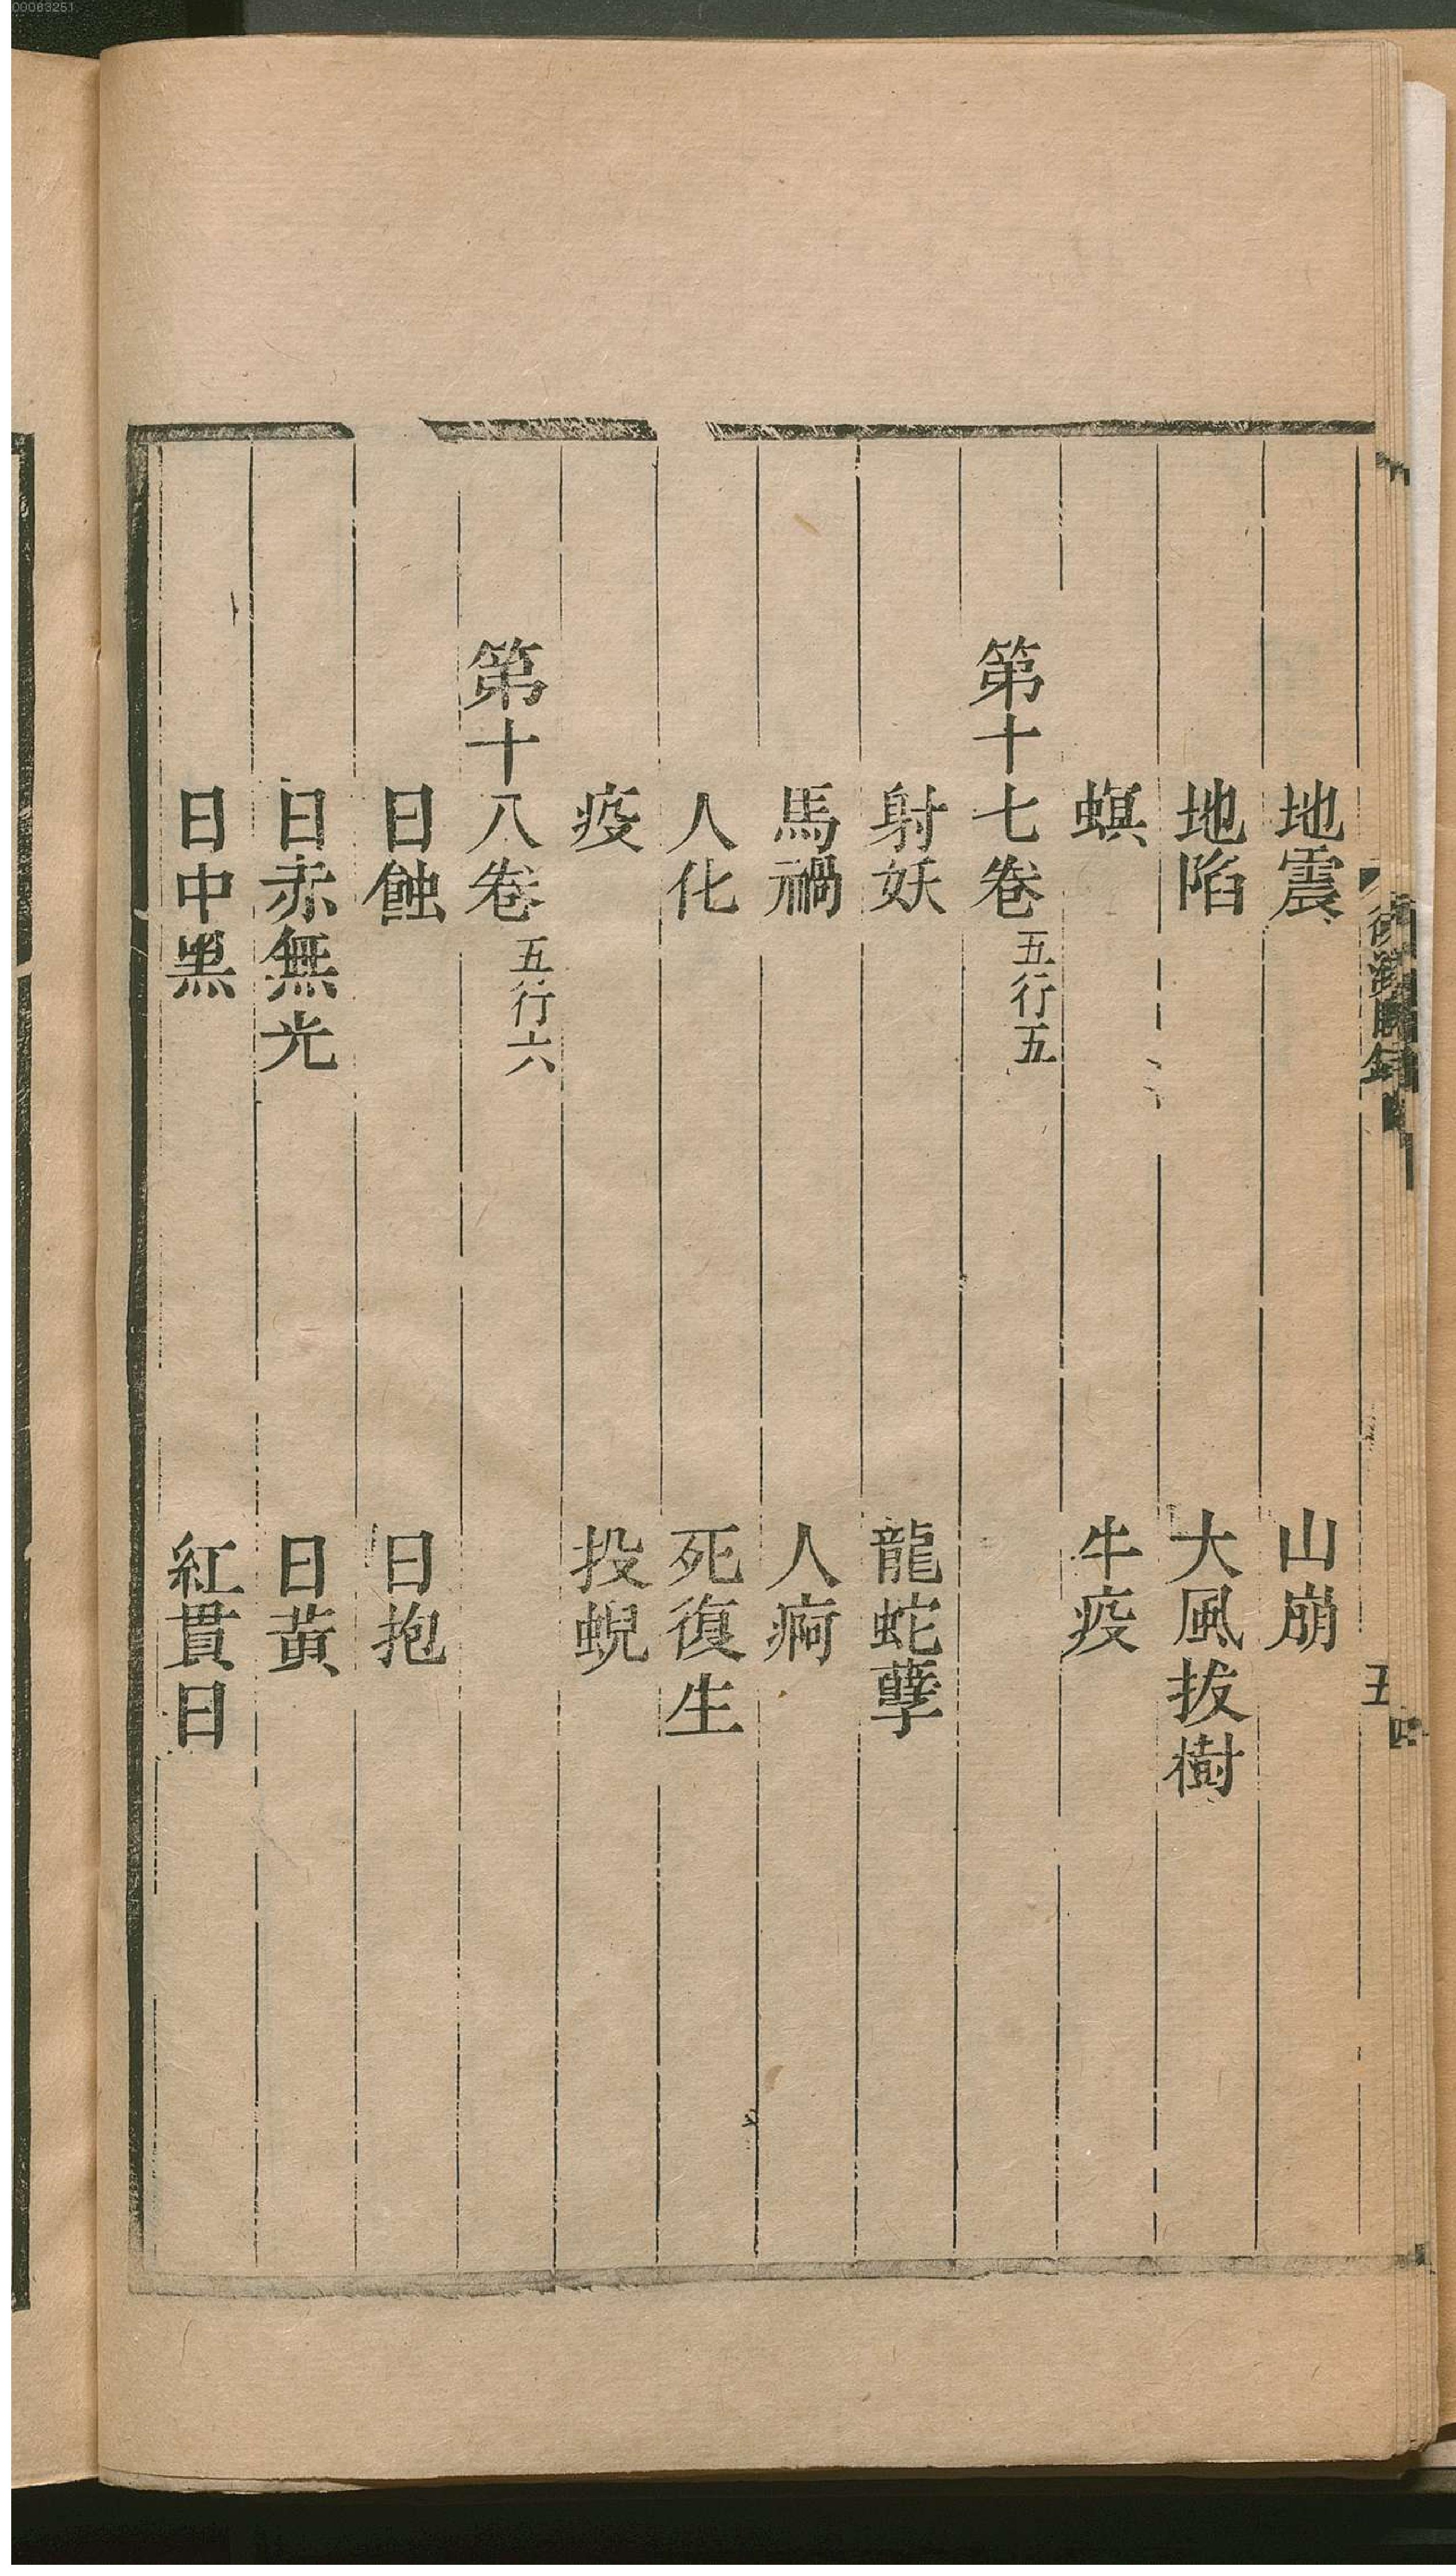 地震　山崩
地陷　大風拔樹
螟　牛疫
第十七卷 五行五
射妖　龍蛇孽
馬禍　人痾
人化　死復生
疫　投蜺
第十八卷 五行六
日蝕　日抱
日赤無光　日黃
日中黑　紅貫日
00083251